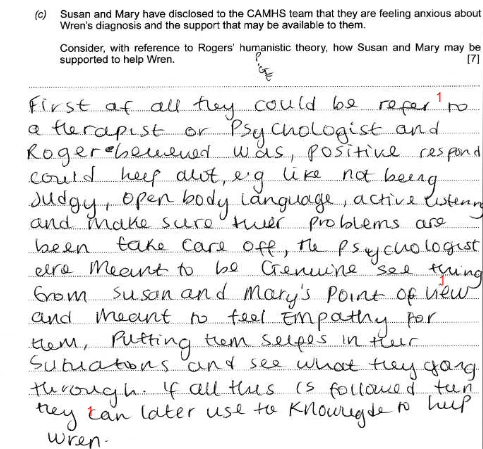 (c) Susan and Mary have disclosed to the CAMHS team that they are feeling anxious about
Wren's diagnosis and the support that may be available to them.
Consider, with reference to Rogers' humanistic theory, how Susan and Mary may be
supported to help Wren. [7]
P
GE
First of all they could be refer 1 to
a therapist or Psychologist and
Roger beweved was, positive respond
could help alot, e.g like not being
Judgy, open body language, active listening
and make sure their problems are
been take care off, the psychologist
are meant to be Genuine see thing
from Susan and Mary's Point of view 1
and meant to feel Empathy for
them, Putting them selfes in their
Sutuations and see what they going
through. if all this is followed then
they 1 can later use the knowlegde to help
Wren.